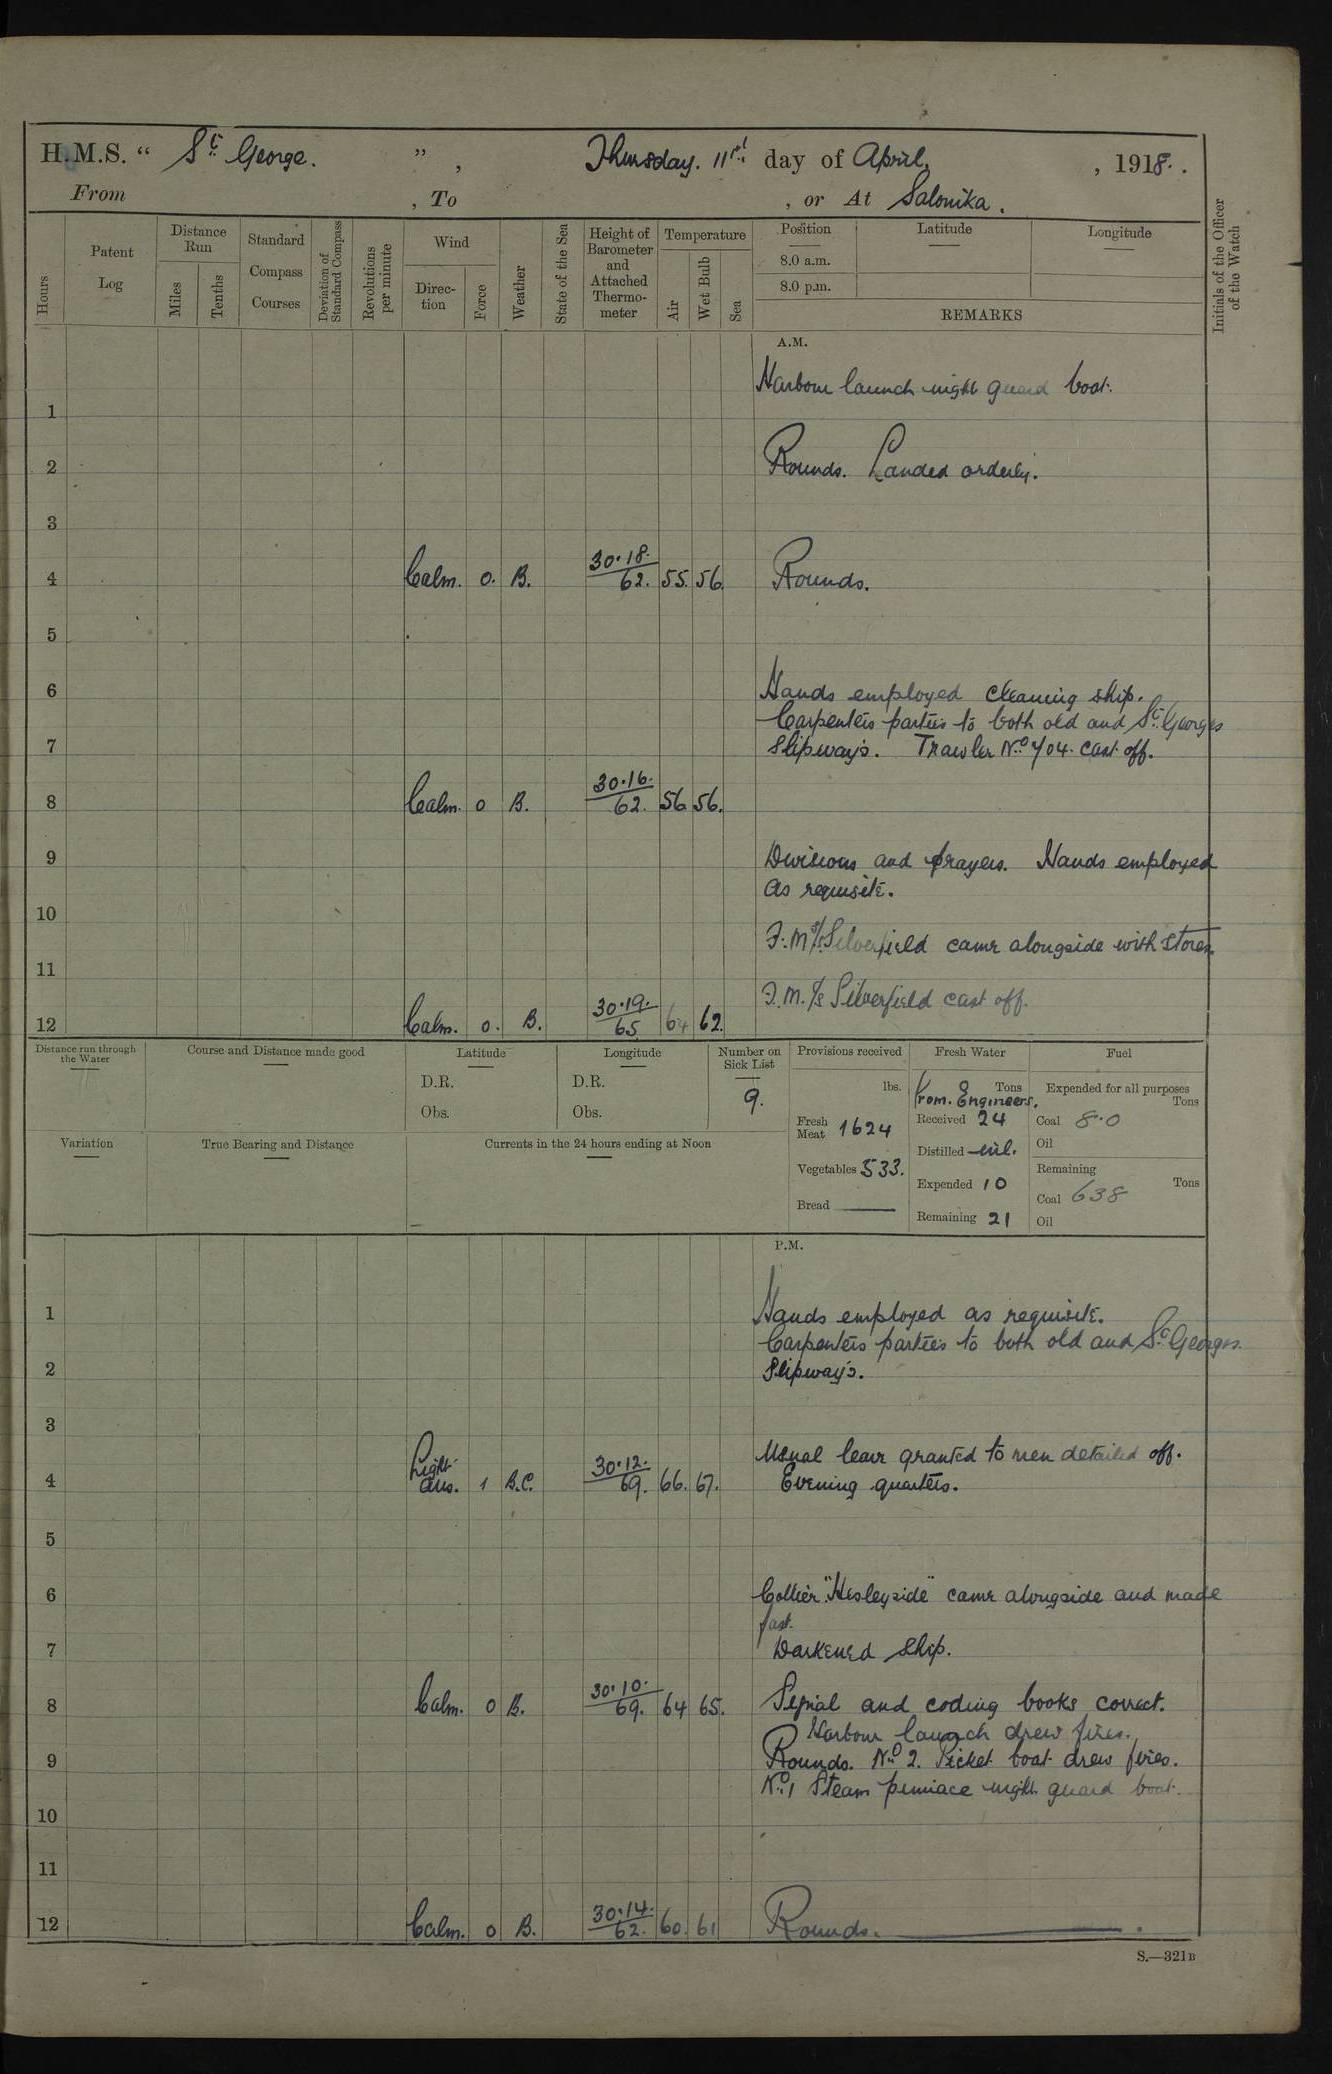 H.M.S. “ St George. ” , Thursday. 11th day of April , 1918.
From , To , or At Salonika.
Hours
Patent Log
Distance Run
Miles
Tenths
Standard Compass Courses
Deviation of Standard Compass
Revolutions per minute
Wind
Direction
Force
Weather
State of the Sea
Height of Barometer and Attached Thermometer
Temperature
Air
Wet Bulb
Sea
Position
8.0 a.m.
8.0 p.m.
Latitude
Longitude
REMARKS
Initials of the Officer of the Watch
A.M.
Harbour launch night guard boat.
1
2 Rounds. Landed orderly.
3
4 Calm. 0. B. 30.18. 62. 55. 56. Rounds.
5
6 Hands employed cleaning ship.
Carpenters parties to both old and St Georges
7 Slipways. Trawler No 704 cast off.
8 Calm. 0 B. 30.16. 62. 56 56.
9 Divisions and prayers. Hands employed
as requisite.
10
F.M.S/s Silverfield came alongside with stores.
11
F.M.S/s Silverfield cast off.
12 Calm. 0. B. 30.19. 65 64 62.
Distance run through the Water
Course and Distance made good
Latitude
D.R.
Obs.
Longitude
D.R.
Obs.
Number on Sick List
9.
Provisions received
lbs.
Fresh Meat 1624
Vegetables 533.
Bread ——
Fresh Water
Tons
From Engineers.
Received 24
Distilled nil.
Expended 10
Remaining 21
Fuel
Expended for all purposes
Tons
Coal 8.0
Oil
Remaining
Tons
Coal 638
Oil
Variation
True Bearing and Distance
Currents in the 24 hours ending at Noon
P.M.
1 Hands employed as requisite.
Carpenters parties to both old and St Georges
2 Slipways.
3
Usual leave granted to men detailed off.
4 Light airs. 1 B.C. 30.12. 69. 66. 67. Evening quarters.
5
6 Collier "Hesleyside" came alongside and made
fast.
7 Darkened ship.
8 Calm. 0 B. 30.10. 69. 64 65. Signal and coding books correct.
Harbour launch drew fires.
9 Rounds. No 2. Picket boat drew fires.
No 1 Steam pinnace night guard boat.
10
11
12 Calm. 0 B. 30.14. 62. 60. 61 Rounds.
S.—321B